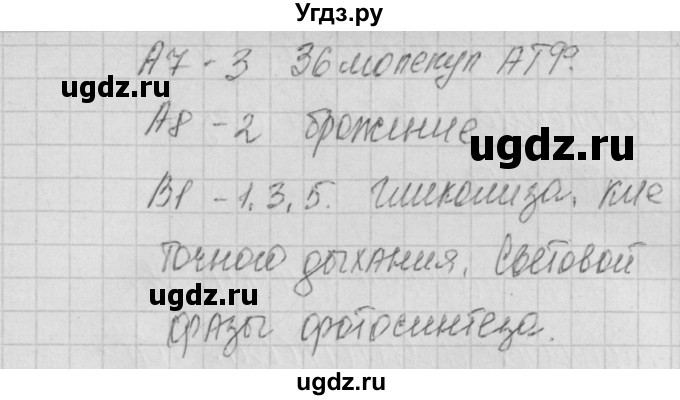 Угдз.ру
А7 - 3 36 молекул АТФ.
ugdz.ru
А8 - 2 брожение
ugdz.ru
В1 - 1, 3, 5. Гликолиза, кле
точного дыхания, Световой
ugdz.ru
фазы фотосинтеза.
ugdz.ru